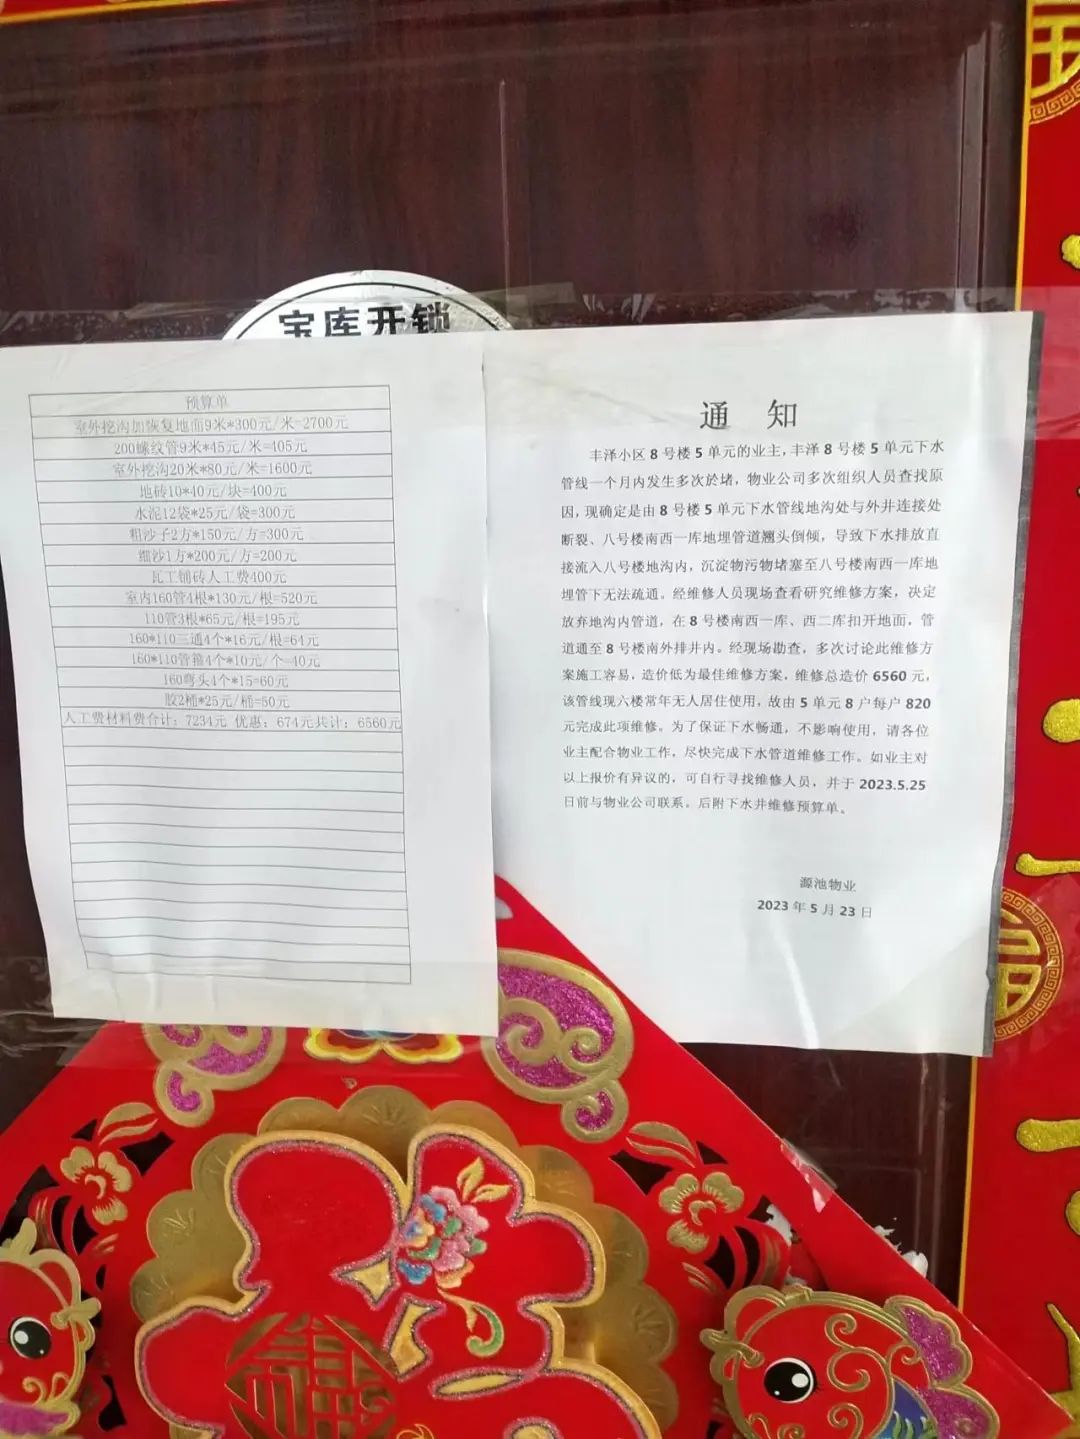 宝库开锁
预算单
室外挖沟加恢复地面9米*300元/米=2700元
200螺纹管9米*45元/米=405元
室外挖沟20米*80元/米=1600元
地砖10*40元/块=400元
水泥12袋*25元/袋=300元
粗沙子2方*150元/方=300元
细沙1方*200元/方=200元
瓦工铺砖人工费400元
室内160管4根*130元/根=520元
110管3根*65元/根=195元
160*110三通4个*16元/根=64元
160*110管箍4个*10元/个=40元
160弯头4个*15=60元
胶2桶*25元/桶=50元
人工费材料费合计：7234元 优惠：674元共计：6560元
通 知
丰泽小区 8 号楼 5 单元的业主，丰泽 8 号楼 5 单元下水
管线一个月内发生多次於堵，物业公司多次组织人员查找原
因，现确定是由 8 号楼 5 单元下水管线地沟处与外井连接处
断裂、八号楼南西一库地埋管道翘头倒倾，导致下水排放直
接流入八号楼地沟内，沉淀物污物堵塞至八号楼南西一库地
埋管下无法疏通。经维修人员现场查看研究维修方案，决定
放弃地沟内管道，在 8 号楼南西一库、西二库扣开地面，管
道通至 8 号楼南外排井内。经现场勘查，多次讨论此维修方
案施工容易，造价低为最佳维修方案，维修总造价 6560 元，
该管线现六楼常年无人居住使用，故由 5 单元 8 户每户 820
元完成此项维修。为了保证下水畅通，不影响使用，请各位
业主配合物业工作，尽快完成下水管道维修工作。如业主对
以上报价有异议的，可自行寻找维修人员，并于 2023.5.25
日前与物业公司联系。后附下水井维修预算单。
源池物业
2023 年 5 月 23 日